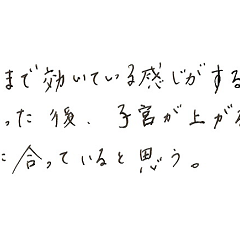 まで効いている感じがする
った後、子宮が上が
に合っていると思う。